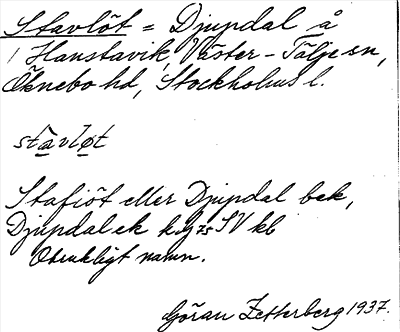 Stavlöt = Djupdal å
/ Hanstavik, Väster-Tälje sn,
Öknebo hd, Stockholms l.
stavløt
Stafiöt eller Djupdal bek,
Djupdal ek SV kb
Obrukligt namn.
Göran Zetterberg 1937.